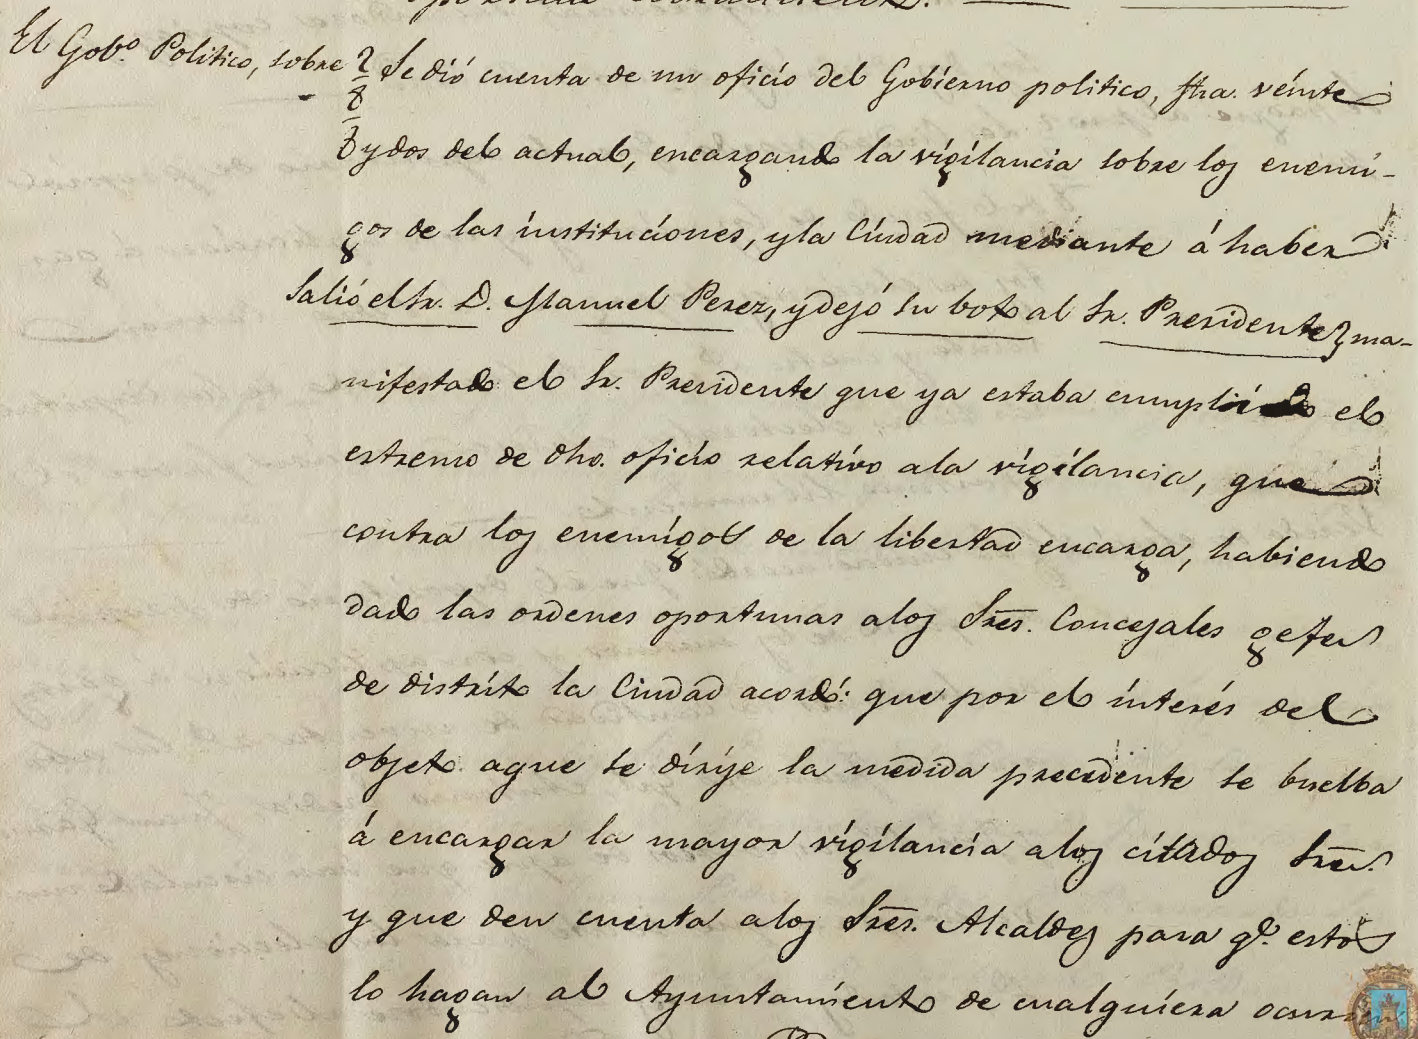 El Gobº. Politico, sobre
Se dió cuenta de un oficio del Gobierno politico, fha. veinte
ydos del actual, encargando la vigilancia sobre los enemi-
gos de las instituciones, yla Ciudad mediante á haber
Salió el Sr. D. Manuel Perez, y dejó su boto al Sr. Presidente ma-
nifestado el Sr. Presidente que ya estaba cumplido el
estremo de dho. oficio relativo ala vigilancia, que
contra los enemigos de la libertad encarga, habiendo
dado las ordenes oportunas alos Sres. Concejales gefes
de distrito la Ciudad acordó: que por el interés del
objeto aque se dirije la medida precedente se buelba
á encargar la mayor vigilancia alos citados Sres.
y que den cuenta alos Sres. Alcaldes para qe. estos
lo hagan al Ayuntamiento de cualquiera